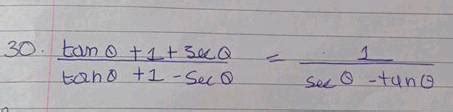 30. tanθ + 1 + secθ / tanθ + 1 - secθ = 1 / secθ - tanθ